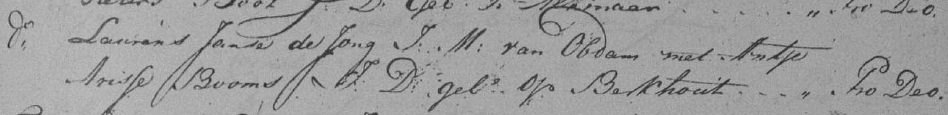 Boot J. D. geb. t. Alkmaar . . . . . „ Pro Deo.
do. Laurens Janse de Jong J. M: van Obdam met Antje
Arisse Booms J. D: geb. op Berkhout . . . „ Pro Deo.